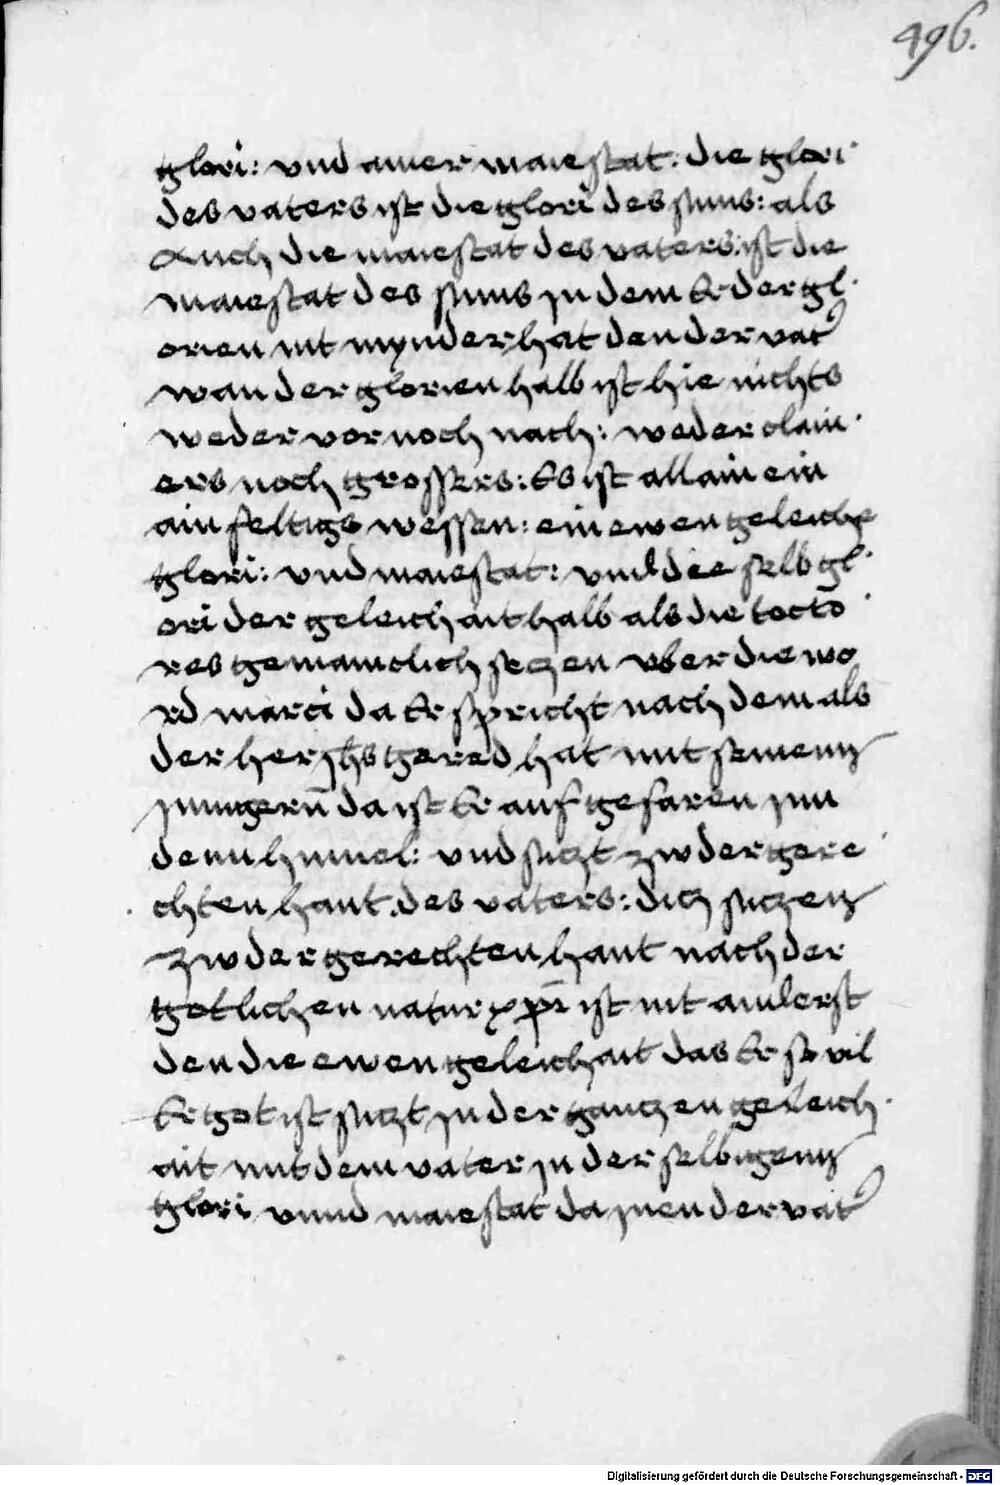 496.
glori: vnd ainer maiestat: die glori
des vaters ist die glori des suns: als
Auch die maiestat des vaters: ist die
maiestat des suns jn dem Er der gl
orien nit mynder hat den der vat
wan der glorien halb ist hie nichts
weder vor noch nach: weder clain
ers noch grossers: Es ist allain ein
ainfeltigs wessen: ein ewen geleiche
glori: vnd maiestat: vnd die selb gl
ori der geleichait halb als die docto
res gemaincklich seczen vber die wo
rd marci da Er spricht nach dem als
der her jhs gered hat mit seinenn
jungern da ist Er auf gefaren jnn
denn himel: vnd siczt zw der gere
chten hant des vaters: dicz siczen
zw der gerechten hant nach der
gotlichen natur xpi ist nit anderst
den die ewen geleichait das Er so vil
Er got ist siczt jn der ganczen geleich
ait mit dem vater jn der selbigenn
glori vnnd maiestat da jnen der vat
Digitalisierung gefördert durch die Deutsche Forschungsgemeinschaft - DFG